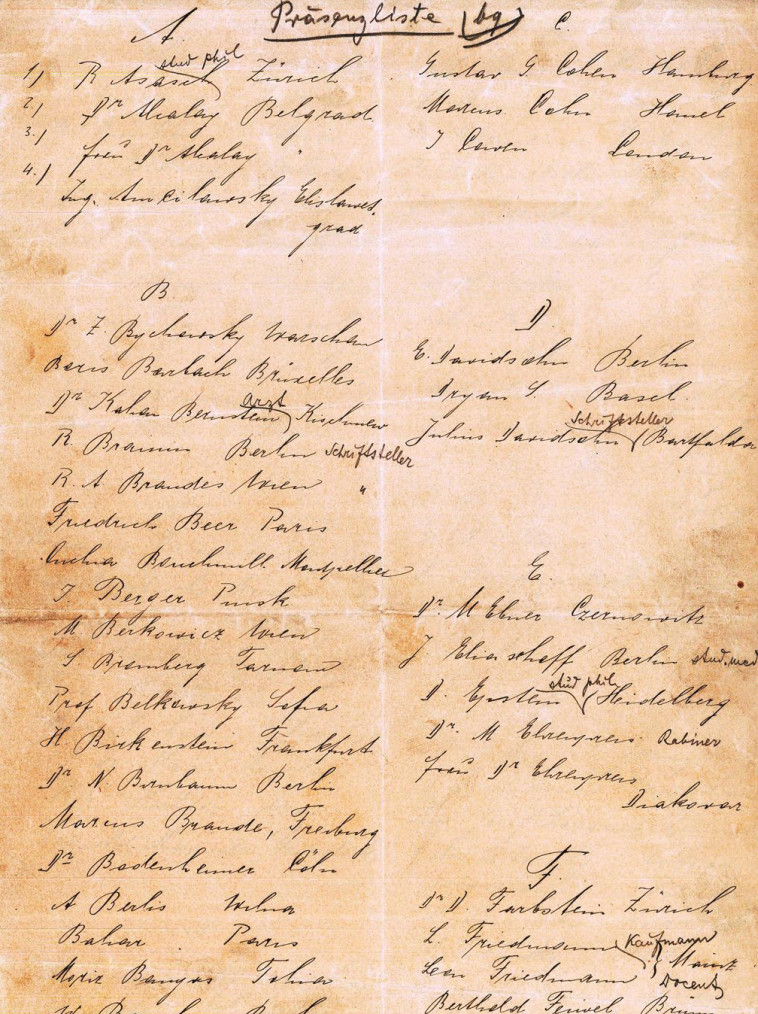 Präsenzliste
A.
1) R Asasch stud phil Zürich
2) Dr Alcalay Belgrad
3.) Frau Dr Alcalay "
4.) Ing. Amcilawsky Elisawet-
grad
B.
Dr Z. Bychowsky Warschau
Boris Barbach Bruxelles
Dr Kohan Bernstein Arzt Kischinew
R. Brainin Berlin Schriftsteller
R. A Brandes Wien "
Friedrich Beer Paris
Montpellier
I. Berger Pinsk
M Berkowicz Wien
S Bromberg Tarnow
Prof Belkowsky Sofia
H. Birkenstein Frankfurt
Dr. N. Birnbaum Berlin
Marcus Braude, Freiburg
Dr Bodenheimer Cöln
A Berlis Wilna
Bahar Paris
Moriz
C.
Gustav G. Cohen Hamburg
Marcus Cohn
J Cowen London
D.
E. Davidsohn Berlin
Dryan S. Basel.
Julius Davidsohn Schriftsteller (Bartfalda
E.
Dr. M Ebner Czernowitz
J Eliascheff Berlin stud. med
D. Epstein stud phil Heidelberg
Dr. M Ehrenpreis Rabiner
Frau Dr Ehrenpreis
Diakovar
F.
Dr D. Farbstein Zürich
L. Friedmann Kaufmann
Leon Friedmann Docent Mainz
Berthold Feiwel Brünn